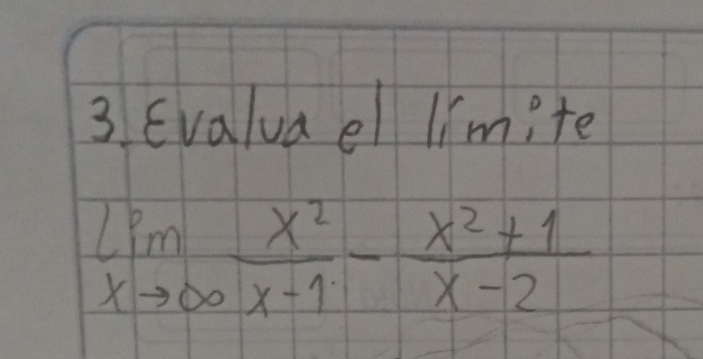 3. Evalua el límite
Lim x→∞ x²/(x-1) - (x²+1)/(x-2)